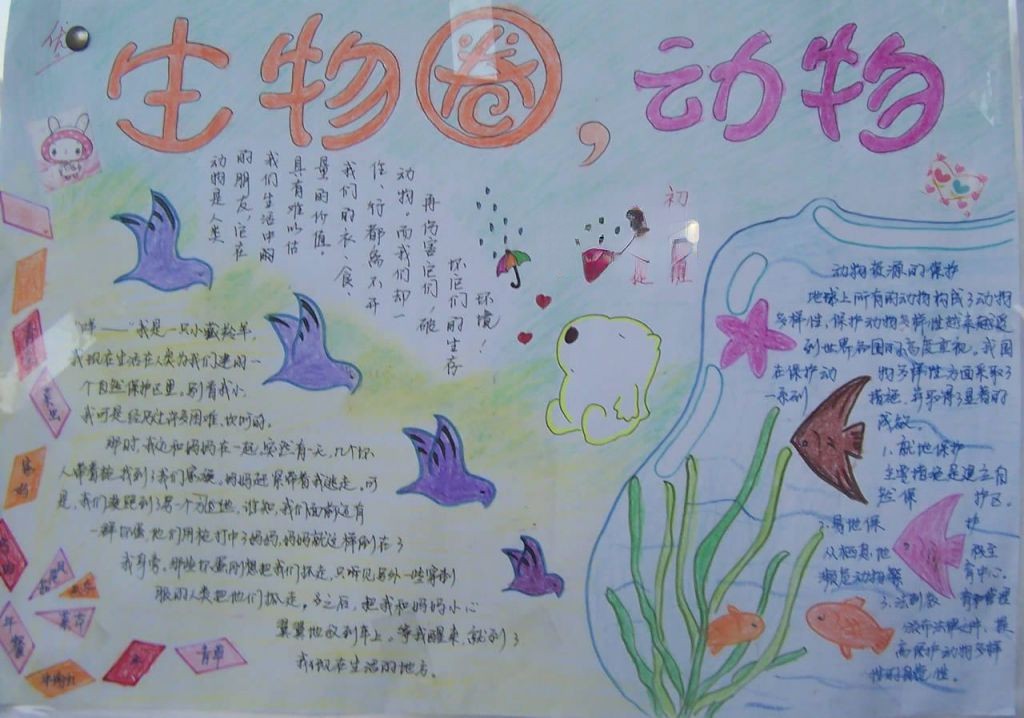 优
生物圈，动物
动物是人类
的朋友，它在
我们生活中的
具有难以估
量的价值。
我们的衣、食、
住、行都离不开
动物。而我们却一
再伤害它们，破
坏它们的生存
环境！
初
"咩——"我是一只小藏羚羊，
我现在生活在人类为我们建的一
个自然保护区里，别看我小，
我可是经历过许多困难、坎坷的。
那时，我还和妈妈在一起，突然有一天，几个坏
人带着枪，找到了我们家族。妈妈赶紧带着我逃走。可
是，我们凑跑到了另一个，谁知，我们面前还有
一群坏蛋，他们用枪打中了妈妈，妈妈就这样倒在了
我身旁。那些坏蛋刚想把我们抓走，只听见另外一些穿制
服的人类把他们抓走。之后，把我和妈妈小心
翼翼地放到车上。等我醒来，就到了
我现在生活的地方。
动物资源的保护
地球上所有的动物构成了动物
多样性，保护动物多样性越来越受
到世界各国的高度重视。我国
在保护动物多样性方面采取了
一系列措施，并取得了显著的
成效。
1、就地保护
主要措施是建立自
然保护区。
2、易地保护
从栖息地移至
濒危动物繁育中心。
3、法制教育和管理
颁布法律文件，提
高保护动物多样
性的自觉性。
青草